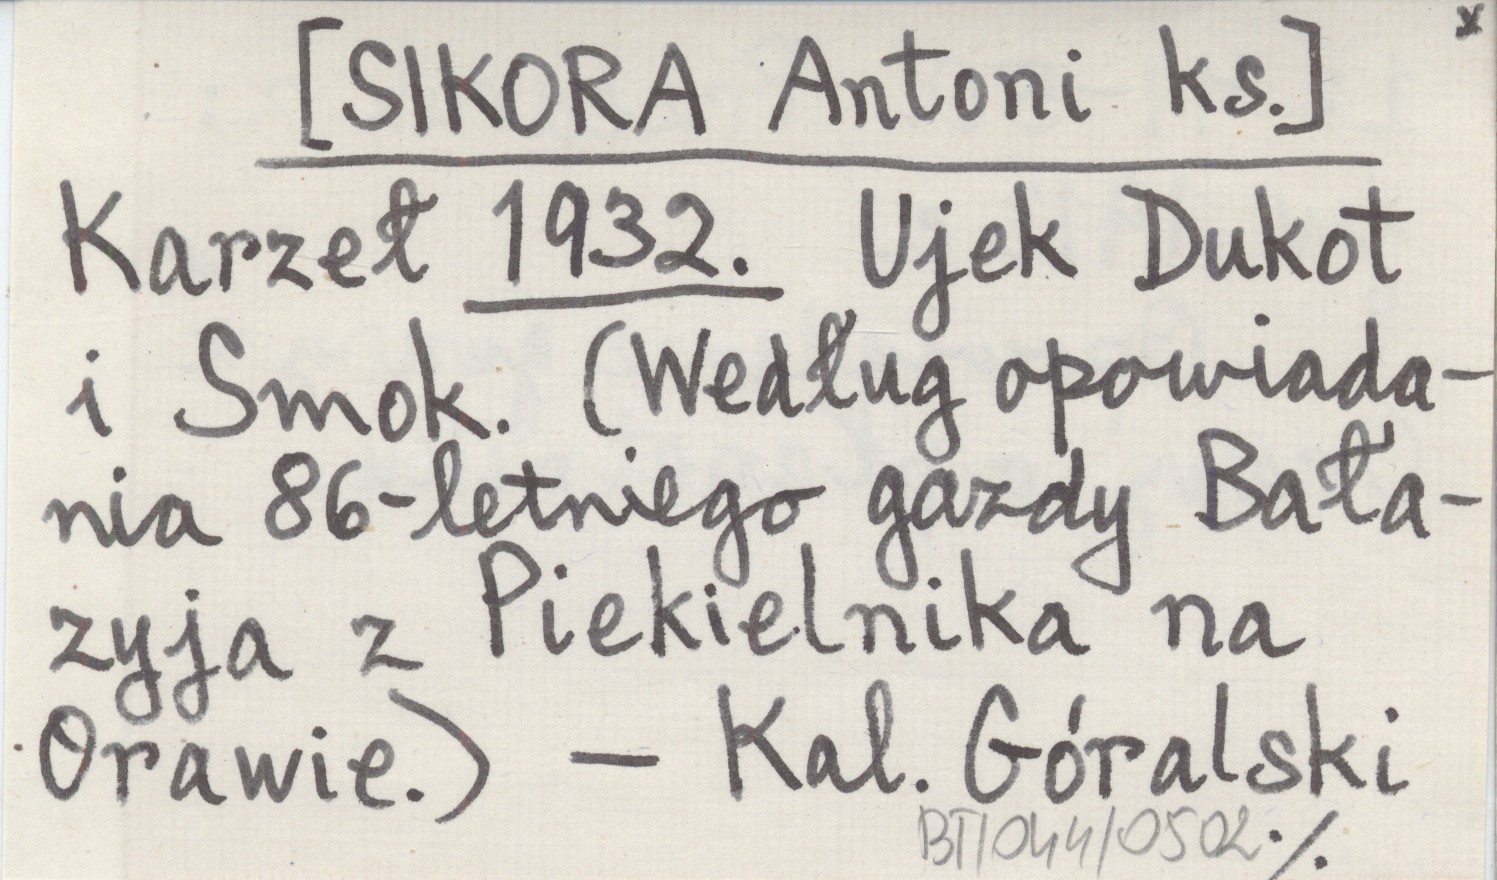 x
[SIKORA Antoni ks.]
Karzeł 1932. Ujek Dukot
i Smok. (Według opowiada-
nia 86-letniego gazdy Bała-
zyja z Piekielnika na
Orawie.) — Kal. Góralski
BT/044/0502 ./.